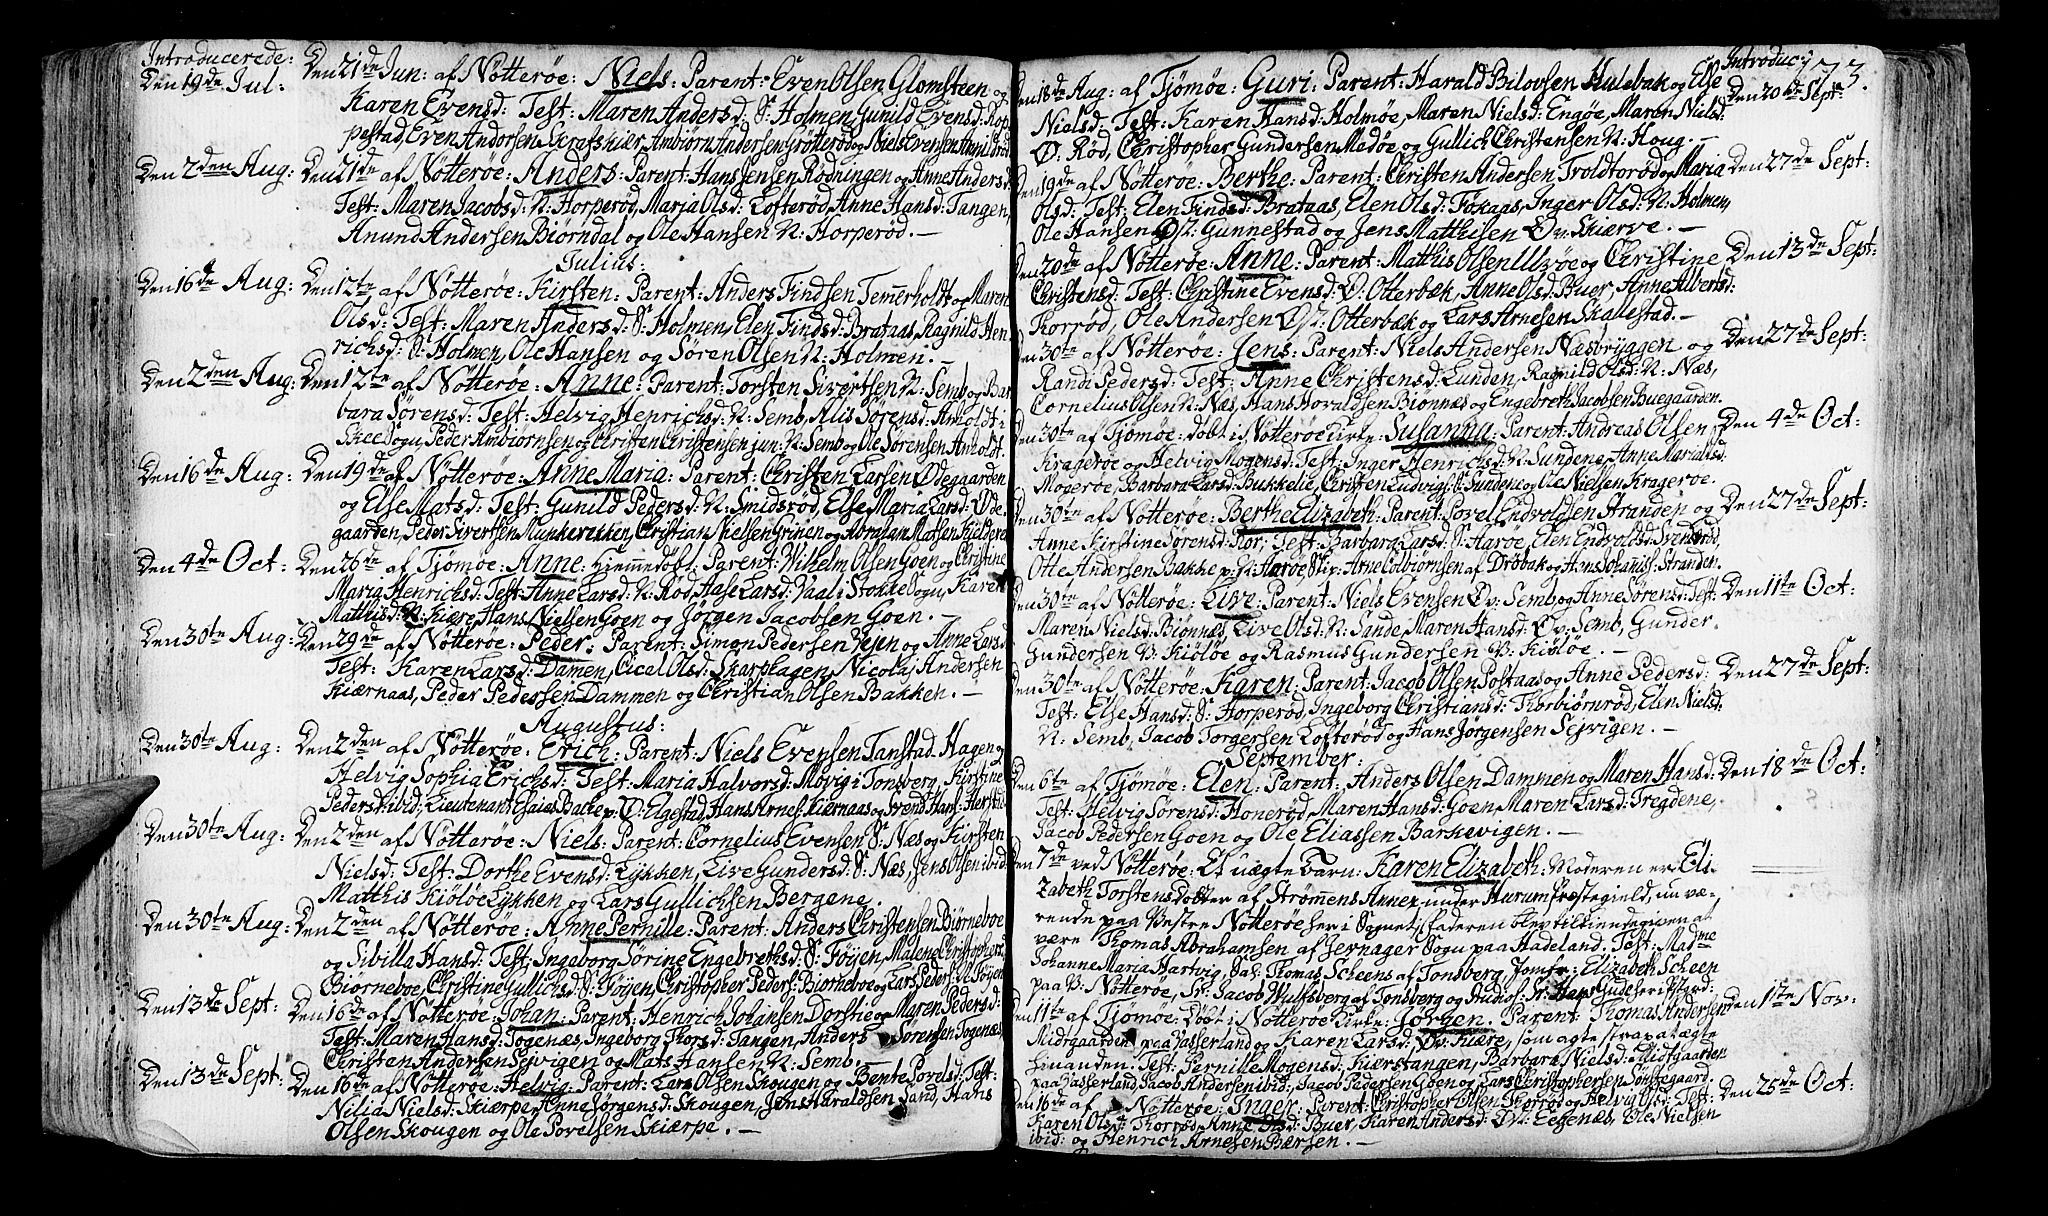 Introducerede:
Den 19de Jul:
Den 21de Jun: af Nötterøe: Niels: Parent: Even Olsen Glomsteen og
Karen Evensd: Test: Maren Andersd: S: Holmen, Gunild Evensd: Rop-
pestad, Even Andersen Skrafskiær, Ambiörn Andersen Gröterød og Niels Evensen
Den 2den Aug:
Den 21de af Nötterøe: Anders: Parent: Hans Jensen Rödningen og Anne Andersd:
Test: Maren Jacobsd: N: Horperød, Maria Olsd: Lofterød, Anne Hansd: Tangen,
Anund Andersen Biörndal og Ole Hansen N: Horperød. —
Julius:
Den 16de Aug:
Den 12te af Nötterøe: Kirsten: Parent: Anders Findsen Temmerholdt og Maren
Olsd: Test: Maren Andersd: S: Holmen, Elen Findsd: Brataas, Ragnild Hen-
richsd: S: Holmen, Ole Hansen og Søren Olsen N: Holmen. —
Den 2den Aug:
Den 12te af Nötterøe: Anne: Parent: Torsten Sivertsen N: Semb og Bar-
bara Sörensd: Test: Helvig Henrichsd: N: Semb, Alis Sörensd: Arholdt i
Skee Sogn, Peder Ambiörnsen og Christen Christensen jun: N: Semb og Ole Sörensen Arholdt.
Den 16de Aug:
Den 19de af Nötterøe: Anne Maria: Parent: Christen Larsen Ødegaarden
og Else Matsd: Test: Gunild Pedersd: N: Smidsrød, Else Maria Larsd: Øde-
gaarden, Peder Sivertsen Munkerekken, Christian Nielsen Grinen og Abraham Matsen Kieldberg
Den 4de Oct:
Den 26de af Tjömøe: Anne: Hiemmedöbt: Parent: Wilhelm Olsen Goen og Christine
Maria Henrichsd: Test: Anne Larsd: N: Rød, Hase Larsd: Vaal i Stokke Sogn, Karen
Matthisd: N: Kiære, Hans Nielsen Goen og Jörgen Jacobsen Goen. —
Den 30te Aug:
Den 29de af Nötterøe: Peder: Parent: Simon Pedersen Vejen og Anne Larsd
Test: Karen Larsd: Damen, Cical Olsd: Skarphagen, Nicolaj Andersen
Kiærnaas, Peder Pedersen Dammen og Christian Olsen Bakken. —
Augustus:
Den 30te Aug:
Den 2den af Nötterøe: Erich: Parent: Niels Evensen Tanstad. Hagen og
Helvig Sophia Erichsd: Test: Maria Halvorsd: Movig i Tonsberg, Kirstine
Pedersd: ibid; Lieutenant Esaias Backe p: Ø: Elgestad, Hans Arnes: Kiærnaas og Svend Hans: Herstad
Den 30te Aug:
Den 2den af Nötterøe: Niels: Parent: Cornelius Evensen S: Næs og Kirsten
Nielsd: Test: Dorthe Evensd: Lykken, Live Gundersd: S: Næs, Jens Olsen ibid
Matthis Kiöløe Lykken og Lars Gullichsen Bergene. —
Den 30te Aug:
Den 2den af Nötterøe: Anne Pernille: Parent: Anders Christensen Biörneboe
og Sibilla Hansd: Test: Ingeborg Sörine Engebrethsd: S: Föyen, Malene Christophersd:
Biörneboe, Christine Gullichsd: S: Föyen, Christopher Peders: Biörneboe og Lars Peders: N: Föyen.
Den 13de Sept:
Den 16de af Nötterøe: Johan: Parent: Henrich Johansen Dorstie og Maren Pedersd:
Test: Maren Hansd: Togenæs, Ingeborg Thorsd: Tangen, Anders Sörensen Togenæs,
Christen Andersen Sejvigen og Mats Hansen N: Semb. —
Den 13de Sept:
Den 16de af Nötterøe: Helvig: Parent: Lars Olsen Skougen og Bente Povelsd: Test:
Nilia Nielsd: Skiærpe, Anne Jörgensd: Skougen, Jens Haraldsen Sand, Hans
Olsen Skougen og Ole Povelsen Skiærpe. —
Introduc: 173.
Den 18de Aug: af Tjömøe: Guri: Parent: Harald Bilovsen Hulebak og Else
Den 20de Septr.
Nielsd: Test: Karen Hansd: Holmøe, Maren Nielsd: Engøe, Maren Nielsd:
Ø: Rød, Christopher Gundersen Medøe og Gullich Christensen N: Houg. —
Den 19de af Nötterøe: Berthe: Parent: Christen Andersen Troldtorød og Maria
Den 27de Sept:
Olsd: Test: Elen Findsd: Brataas, Elen Olsd: Fokaas, Inger Olsd: N: Holmen,
Ole Hansen Ø: Gunnestad og Jens Matthisen Øv: Skierve. —
Den 20de af Nötterøe: Anne: Parent: Matthis Olsen Ulvøe og Christine
Den 13de Sept:
Christensd: Test: Christine Evensd: Ø: Otterbæk, Anne Olsd: Buer, Anne Albertsd:
Torrød, Ole Andersen Ø: Otterbæk og Lars Arnesen Skallestad. —
Den 30te af Nötterøe: Jens: Parent: Niels Andersen Næsbryggen og
Den 27de Sept:
Randi Pedersd: Test: Anne Christensd: Lunden, Ragnild Olsd: N: Næs,
Cornelius Olsen N: Næs, Hans Horaldsen Bionnæs og Engebreth Jacobsen Buegaarden.
Den 30te af Tjömøe: döbt i Nötterøe Kirke: Susanna: Parent: Andreas Olsen
Den 4de Oct:
Kragerøe og Helvig Mogensd: Test: Inger Henrichsd: N: Sundene, Anne Maria
Mogerøe, Barbara Larsd: Bukkelie, Christen Ludvigs: S: Sundene og Ole Nielsen Kragerøe.
Den 30te af Nötterøe: Berthe Elizabeth: Parent: Povel Endvoldsen Stranden og
Den 27de Sept:
Anne Kirstine Sørensd: Roe; Test: Barbara Larsd: S: Aarøe, Elen Endvoldsd: Svensrød,
Otte Andersen Bakke p: N: Aarøe, Stip: Arne Colbiörnsen af Dröbak og Hans Johanis: Stranden.
Den 30te af Nötterøe: Live: Parent: Niels Evensen Øv: Semb, og Anne Sørensd: Test:
Den 11te Oct:
Maren Nielsd: Bionnæs, Live Olsd: N: Sande, Maren Hansd: Øv: Semb, Gunder
Gundersen N: Kiöløe og Rasmus Gundersen N: Kiöløe. —
Den 30te af Nötterøe: Karen: Parent: Jacob Olsen Postaas og Anne Pedersd:
Den 27de Sept:
Test: Else Hansd: S: Horperød, Ingeborg Christiansd: Thorbiörnrød, Elen Nielsd:
N: Semb, Jacob Torgersen Lofterød og Hans Jörgensen Sejvigen. —
September:
Den 6te af Tjömøe: Elen: Parent: Anders Olsen Dammen og Maren Hansd:
Den 18de Oct:
Test: Helvig Sørensd: Honerød, Maren Hansd: Goen, Maren Larsd: Tregdene,
Jacob Pedersen Goen og Ole Eliassen Barkevigen. —
Den 7de ved Nötterøe: Et uægte Barn: Karen Elizabeth: Moderen er Eli-
zabeth Torstensdatter af Strømmens Annex under Hurum Præstegield, nu væ-
rende paa Vestre Nötterøe her i Sognet, Faderen blev tilkiendegiven at
være Thomas Abrahamsen af Jernager Sogn paa Hadeland. Test: Madme
Johanne Maria Hartvig, Sal: Thomas Scheens af Tonsberg, Jomfr: Elizabeth Scheen
paa N: Nötterøe, Sr: Jacob Wulfsberg af Tonsberg og Studios: Sr: Hans Gude
Den 11te af Tjömøe: Döbt i Nötterøe Kirke: Jörgen. Parent: Thomas Andersen
Den 1te Nov:
Midtgaarden paa Jasserland og Karen Larsd: Øv: Kiære, som ægte
hinanden: Test: Pernille Mogensd: Kierstangen, Barbara Nielsd: Midtgaarden
paa Jasserland, Jacob Andersen ibid; Jacob Pedersen Goen og Lars Christophersen Sönstegaard.
Den 16de af Nötterøe: Inger: Parent: Christopher Olsen Torrød og Helvig Olsd: Test:
Den 25de Oct:
Karen Olsd: Torrød, Anne Olsd: Buer, Karen Andersd: Øv: Eegenæs, Ole Nielsen
ibid: og Henrich Arnesen Bærsen. —